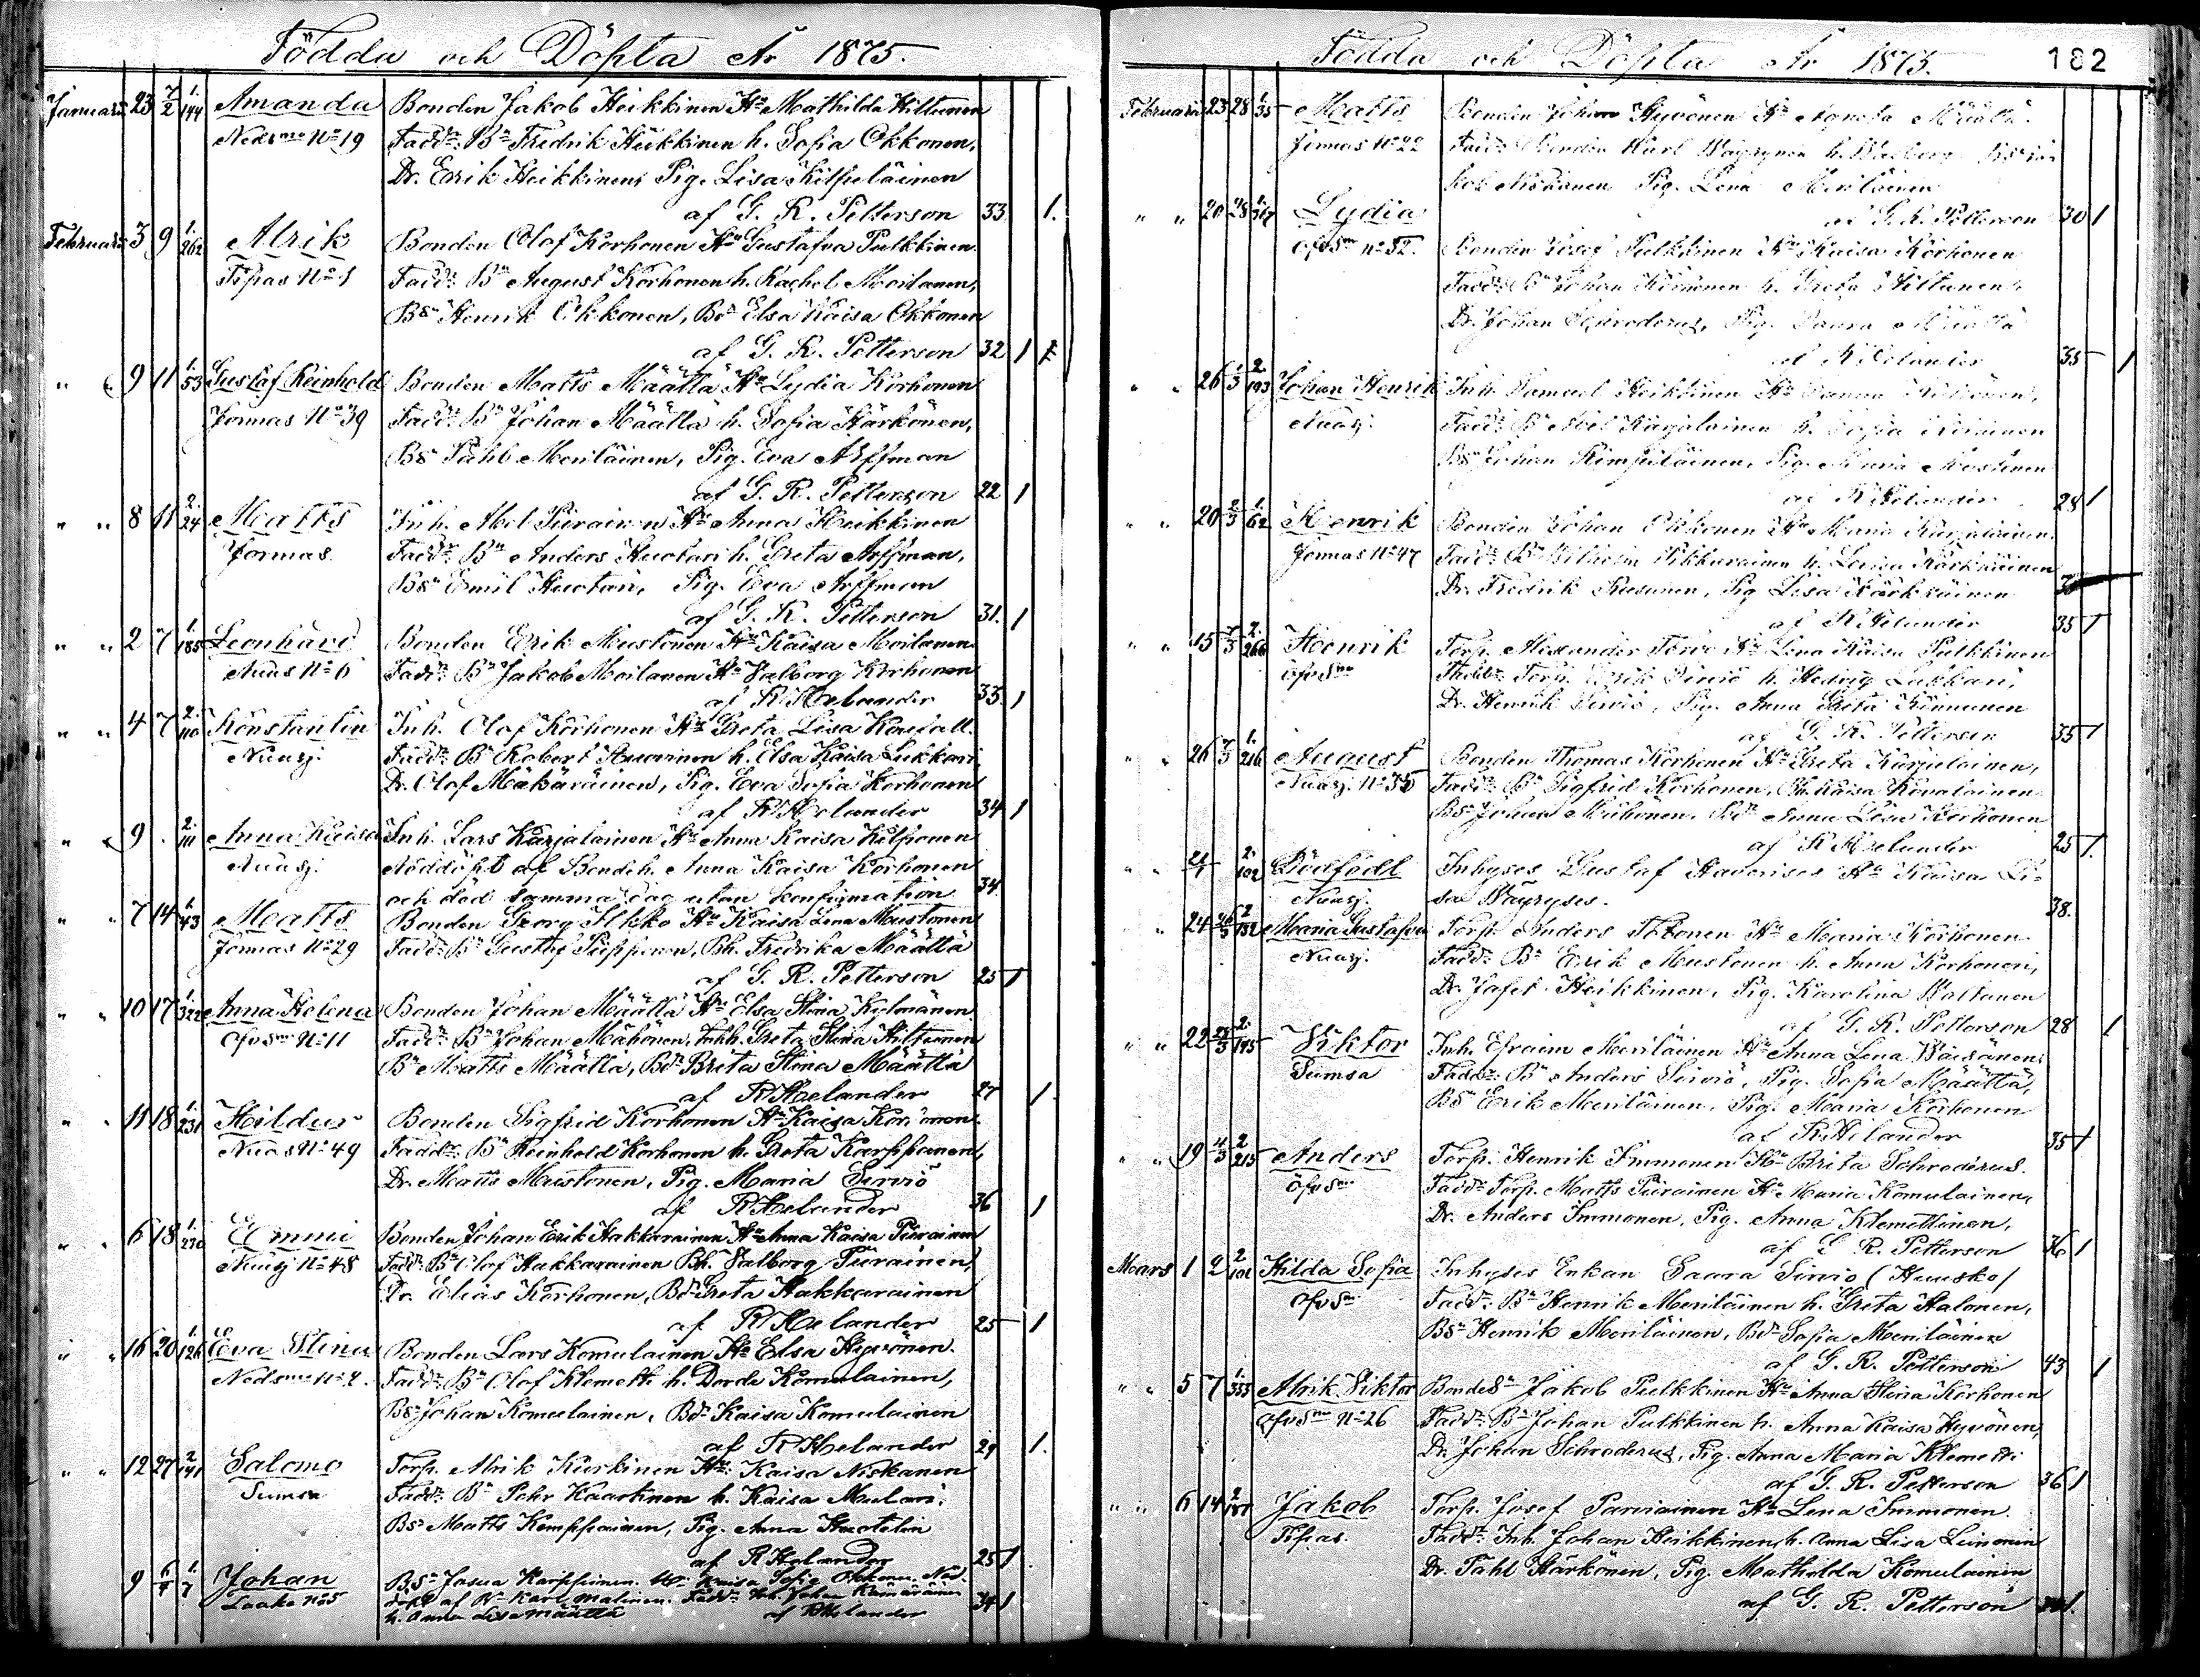 Födda och Döpta År 1875.
Januari 23 7/2 1/144 Amanda Bonden Jakob Heikkinen Hu Mathilda Hiltunen
Nedsmo No 19 Fadd: Bn Fredrik Heikkinen h. Sofia Okkonen,
Dr. Erik Heikkinen, Pig. Lisa Kilpeläinen
af G. R. Petterson 33 1.
Februari 3 9 1/262 Alrik Bonden Olof Korhonen Hu Gustafva Pulkkinen
Tipas No 1 Fadd: Bn August Korhonen h. Rachel Moilanen,
Bsn Henrik Okkonen, Bdr Elsa Kaisa Okkonen
af G. R. Petterson 32 1
" " 9 11 1/53 Gustaf Reinhold Bonden Matts Määttä Hu Lydia Korhonen
Jormas No 39 Fadd: Bn Johan Määttä h. Sofia Härkönen,
Bsn Påhl Meriläinen, Pig. Eva Arffman
af G. R. Petterson 22 1
" " 8 11 2/24 Matts Inh. Abel Piirainen Hu Anna Heikkinen
Jormas. Fadd: Bn Anders Huotari h. Greta Arffman,
Bsn Emil Huotari, Pig. Eva Arffman
af G. R. Petterson 31. 1
" " 2 7 1/185 Leonhard Bonden Erik Mustonen Hu Kaisa Moilanen
Nuas No 6 Fadd: Bn Jakob Moilanen Hu Valborg Korhonen
af R Helander 33. 1
" " 4 7 2/110 Konstantin Inh. Olof Korhonen Hu Greta Lisa
Nuasj. Fadd: Bn Robert Huovinen h. Elsa Kaisa Lukkari
Dr. Olof Mäkäräinen, Pig. Eva Sofia Korhonen
af R Helander 34 1
" " 9 . 2/111 Anna Kaisa Inh. Lars Karjalainen Hu Anna Kaisa Kilponen
Nuasj. Nöddöpt af Bondeh. Anna Kaisa Korhonen
och död samma dag utan konfirmation 34
" " 7 14 1/43 Matts Bonden Georg Ilkko Hu Kaisa Lena Mustonen
Jormas No 29 Fadd: Bn Gustaf Piipponen, Bh. Fredrika Määttä
af G. R. Petterson 25 1
" " 10 17 1/322 Anna Helena Bonden Johan Määttä Hu Elsa Stina Kylmänen
Öfvsmo No 11 Fadd: Bn Johan Mähönen, Inhh. Greta Stina Hiltunen
Bn Matts Määttä, Bdr Brita Stina Määttä
af R Helander 27 1
" " 11 18 1/231 Hildur Bonden Sigfrid Korhonen Hu Kaisa Korhonen.
Nuas No 49 Fadd: Bn Reinhold Korhonen h. Greta Karppanen,
Dr. Matts Mustonen, Pig. Maria Sirviö
af R Helander 36 1
" " 6 18 1/230 Emmi Bonden Johan Erik Hakkarainen Hu Anna Kaisa Piirainen
Nuasj No 48 Fadd: Bn Olof Hakkarainen Bh. Valborg Piirainen,
Dr. Elias Korhonen, Bdr Greta Hakkarainen
af R Helander 25 1
" " 16 20 1/126 Eva Stina Bonden Lars Komulainen Hu Elsa Hyvönen.
Nedsmo No 4. Fadd: Bn Olof Klemetti h. Dorde Komulainen,
Bsn Johan Komulainen, Bdr Kaisa Komulainen
af R Helander 29 1.
" " 12 27 2/141 Salomo Torp. Alrik Kurkinen Hu Kaisa Niskanen
Sumsa Fadd: Bn Pehr Kaartinen h. Kaisa Mulari,
Bsn Matts Kemppainen, Pig. Anna Huotelin
af R Helander 25 1
9 1/7 Johan Bsn Josua Karppinen Hu Kaisa Sofia Okkonen Nöd
Laaka No 5 döpt af Bn Karl Malinen. Fadd: Inh. Johan Kämäräinen
h. Anna Lisa Määttä af R Helander 34 1
Födda och Döpta År 1875. 182
Februari 23 28 1/35 Matts Bonden Johan Hyvönen Hu Agneta Määttä.
Jormas No 22 Fadd: Bonden Karl Väyrynen h. Walborg
kob Mikkonen Pig. Lena Meriläinen
af G. R. Petterson 30 1
" " 20 28 1/367 Lydia
Öfvsmo No 52. Bonden Josef Pulkkinen Hu Kaisa Korhonen
Fadd: Bn Johan Korhonen h. Greta Hiltunen,
Dr. Johan Schroderus, Pig. Saara Määttä
af R Helander 35 1
" " 26 1/3 2/193 Johan Henrik Inh. Samuel Heikkinen Hu Sanna
Nuasj. Fadd: Bn Abel Karjalainen h. Sofia
Bsn Johan Kimpiläinen, Pig. Maria Mustonen
af R Helander 28 1
" " 20 2/3 1/62 Henrik Bonden Johan Okkonen Hu Maria Karjalainen
Jormas No 47 Fadd: Bn Wilhelm Pikkarainen h. Leena Kärkkäinen
Dr. Fredrik Kusunen, Pig Lisa Kärkkäinen
af R Helander 35 1
" " 15 7/3 2/266 Henrik Torp. Alexander Sirviö Hu Lena Kaisa Pulkkinen
Öfvsmo Fadd: Torp. Erik Sirviö h. Hedvig Lukkari,
Dr. Henrik Sirviö, Pig. Anna Greta Kinnunen
af G. R. Petterson 35 1
" " 26 7/3 1/216 August Bonden Thomas Korhonen Hu Greta Karjalainen,
Nuasj. No 35 Fadd: Bn Sigfrid Korhonen, Bh. Kaisa Kovalainen
Bsn Johan Mähönen, Bdr Anna Lisa Korhonen
af R Helander 25 1.
" " 24 2/102 Dödfödt Inhyses Gustaf Haverises Hu Kaisa Li-
Nuasj. sa Wäyryses. 38.
" 24 2/132 Maria Gustafva Torp. Anders Tolonen Hu Maria Korhonen
Nuasj. Fadd: Bn Erik Mustonen h. Anna Korhonen,
Dr. Jafet Heikkinen, Pig. Karolina Valtanen
af G. R. Petterson 28 1
" " 22 2/145 Viktor Inh. Efraim Meriläinen Hu Anna Lena Väisänen,
Sumsa Fadd: Bn Anders Sirviö, Pig. Sofia Määttä,
Bsn Erik Meriläinen, Pig. Maria Korhonen
af R Helander 35 1
" " 19 4/3 2/215 Anders Torp. Henrik Immonen Hu Brita Schroderus.
Öfvsmo Fadd: Torp. Matts Piirainen Hu Maria Komulainen,
Dr. Anders Immonen, Pig. Anna Klemettinen,
af G R. Petterson 36 1
Mars 1 2 2/101 Hilda Sofia Inhyses Enkan Saara Sirviö (Huusko/
Öfvsmo Fadd: Bn Henrik Meriläinen h. Greta Halonen,
Bsn Henrik Meriläinen, Bdr Sofia Meriläinen
af G. R. Petterson 43 1
" " 5 7 1/353 Alrik Viktor Bondesn Jakob Pulkkinen Hu Anna Stina Korhonen
Öfvsmo No 26 Fadd: Bn Johan Pulkkinen h. Anna Kaisa Hyvönen,
Dr. Johan Schroderus, Pig. Anna Maria Klemetti
af G. R. Petterson 36 1
" " 6 14 Jakob Torp. Josef Parviainen Hu Lena Immonen.
Tipas. Fadd: Inh. Johan Heikkinen, h. Anna Lisa Leinonen
Dr. Påhl Härkönen, Pig. Mathilda Komulainen
af G. R. Petterson 1.